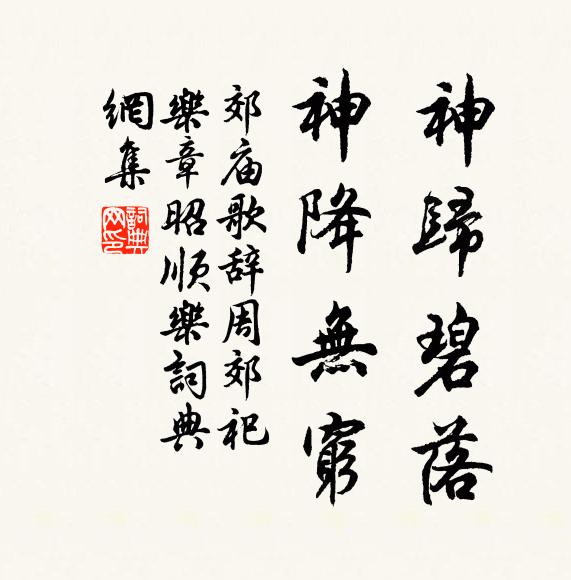 神歸碧落
神降無窮
郊庙歌辞周郊祀
樂章昭順樂詞典
網集
詞典
网印